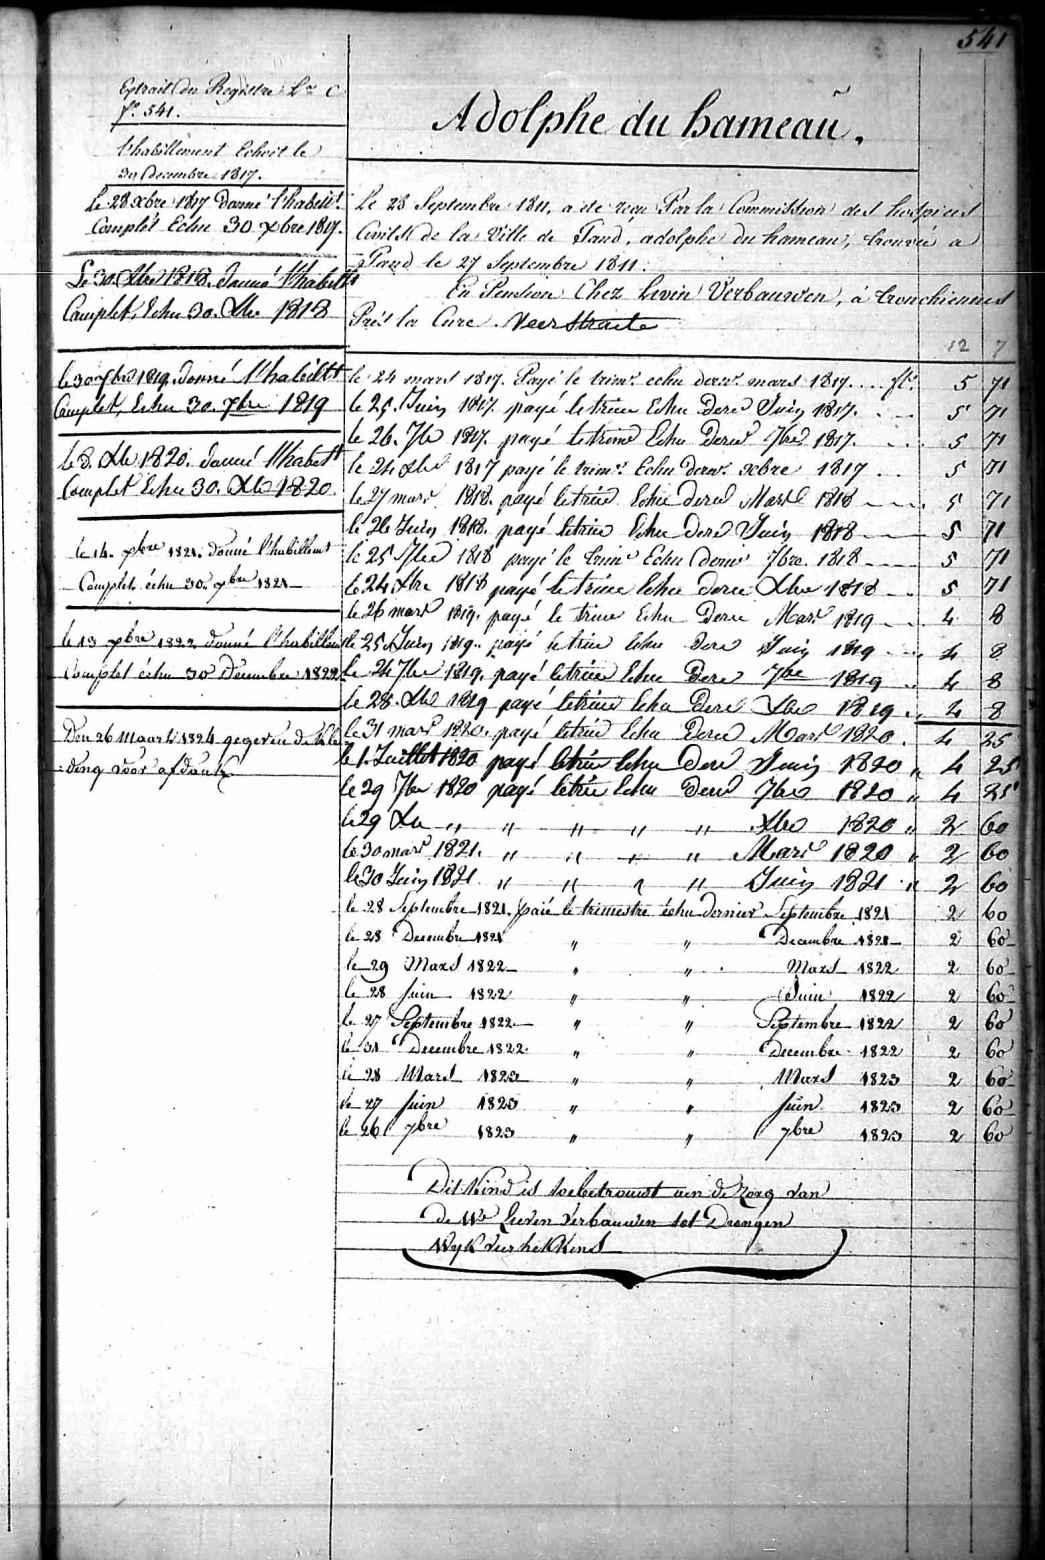 541
Extrait du Registre Lre C
fo. 541.
l'habillement Echoit le
30 Decembre 1817.
Le 28 Xbre 1817 donné l'habillt.
Complèt Echu 30 xbre 1817.
Le 30. Xbre 1818. donné l'habillt
Complet, Echu 30. Xbre 1818
le 30 Xbre 1819. donné l'habillt
Complet, Echu 30. xbre 1819
le 8. Xbre 1820. donné l'habillt
Complet Echu 30. Xbre 1820.
le 14. xbre 1821. donné l'habillement
Complet échu 30. xbre 1821
le 13 xbre 1822 donné l'habillement
Complet échu 30 Decembre 1822
Den 26 Maart 1824 gegeven de klee
ding voor afdank
Adolphe du hameau.
Le 28 Septembre 1811, a été reçu Par la Commission des hospices
Civils de la Ville de Gand, adolphe du hameau, trouvé a
Gand le 27 Septembre 1811.
En Pension Chez Livin Verbauwen, à tronchiennes
Près la Cure. Veerstraete
12 7
le 24 mars 1817. Payé le trimr. echu dernr. mars 1817.... fl. 5 71
le 25. Juin 1817. payé le trim Echu Derr Juin 1817. 5 71
le 26. 7bre 1817. payé le trim Echu Derr 7bre 1817. 5 71
le 24 Xbre 1817 payé le trimr. Echu dernr. xbre 1817 5 71
le 27 mars 1818. payé le trim Echu derr Mars 1818 5 71
le 26 Juin 1818. payé le trim Echu Derr Juin 1818 5 71
le 25 7bre 1818 payé le trimr Echu dernr 7bre. 1818 5 71
le 24 Xbre 1818 payé le trim Echu derr Xbre 1818 5 71
le 26 mars 1819. payé le trim Echu Derr Mars 1819 4 8
le 25 Juin 1819. payé le trim Echu Derr Juin 1819 4 8
le 24 7bre 1819. payé le trim Echu Derr 7bre 1819 4 8
le 28. Xbre 1819 payé le trim Echu Derr Xbre 1819 4 8
le 31 mars 1820. payé le trim Echu Derr Mars 1820. 4 25
le 1. Juillet 1820 payé le trim Echu Derr Juin 1820 " 4 25
le 29 7bre 1820 payé le trim Echu Derr 7bre 1820 " 4 25
le 29 Xbre " " " " " Xbre 1820 " 2 60
le 30 mars 1821. " " " " Mars 1820 " 2 60
le 30 Juin 1821 " " " " Juin 1821 " 2 60
le 28 Septembre 1821. paié le trimestre échu dernier Septembre 1821 2 60
le 28 Decembre 1821 " " Decembre 1821 2 60
le 29 Mars 1822 " " Mars 1822 2 60
le 28 Juin 1822 " " Juin 1822 2 60
le 27 Septembre 1822 " " Septembre 1822 2 60
le 31 Decembre 1822. " " Decembre 1822 2 60
le 28 Mars 1823 " " Mars 1823 2 60
le 27 Juin 1823 " " Juin 1823 2 60
le 26 7bre 1823 " " 7bre 1823 2 60
Dit Kind is toebetrouwt aen de Zorg van
de We Lieven Verbauwen tot Drongen
Wyk